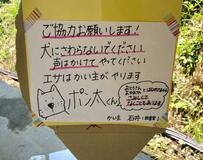 ご協力お願いします!
犬にさわらないでください
声はかけてやってください
エサはかい主がやります
ポン太くん
かいぬし 石井